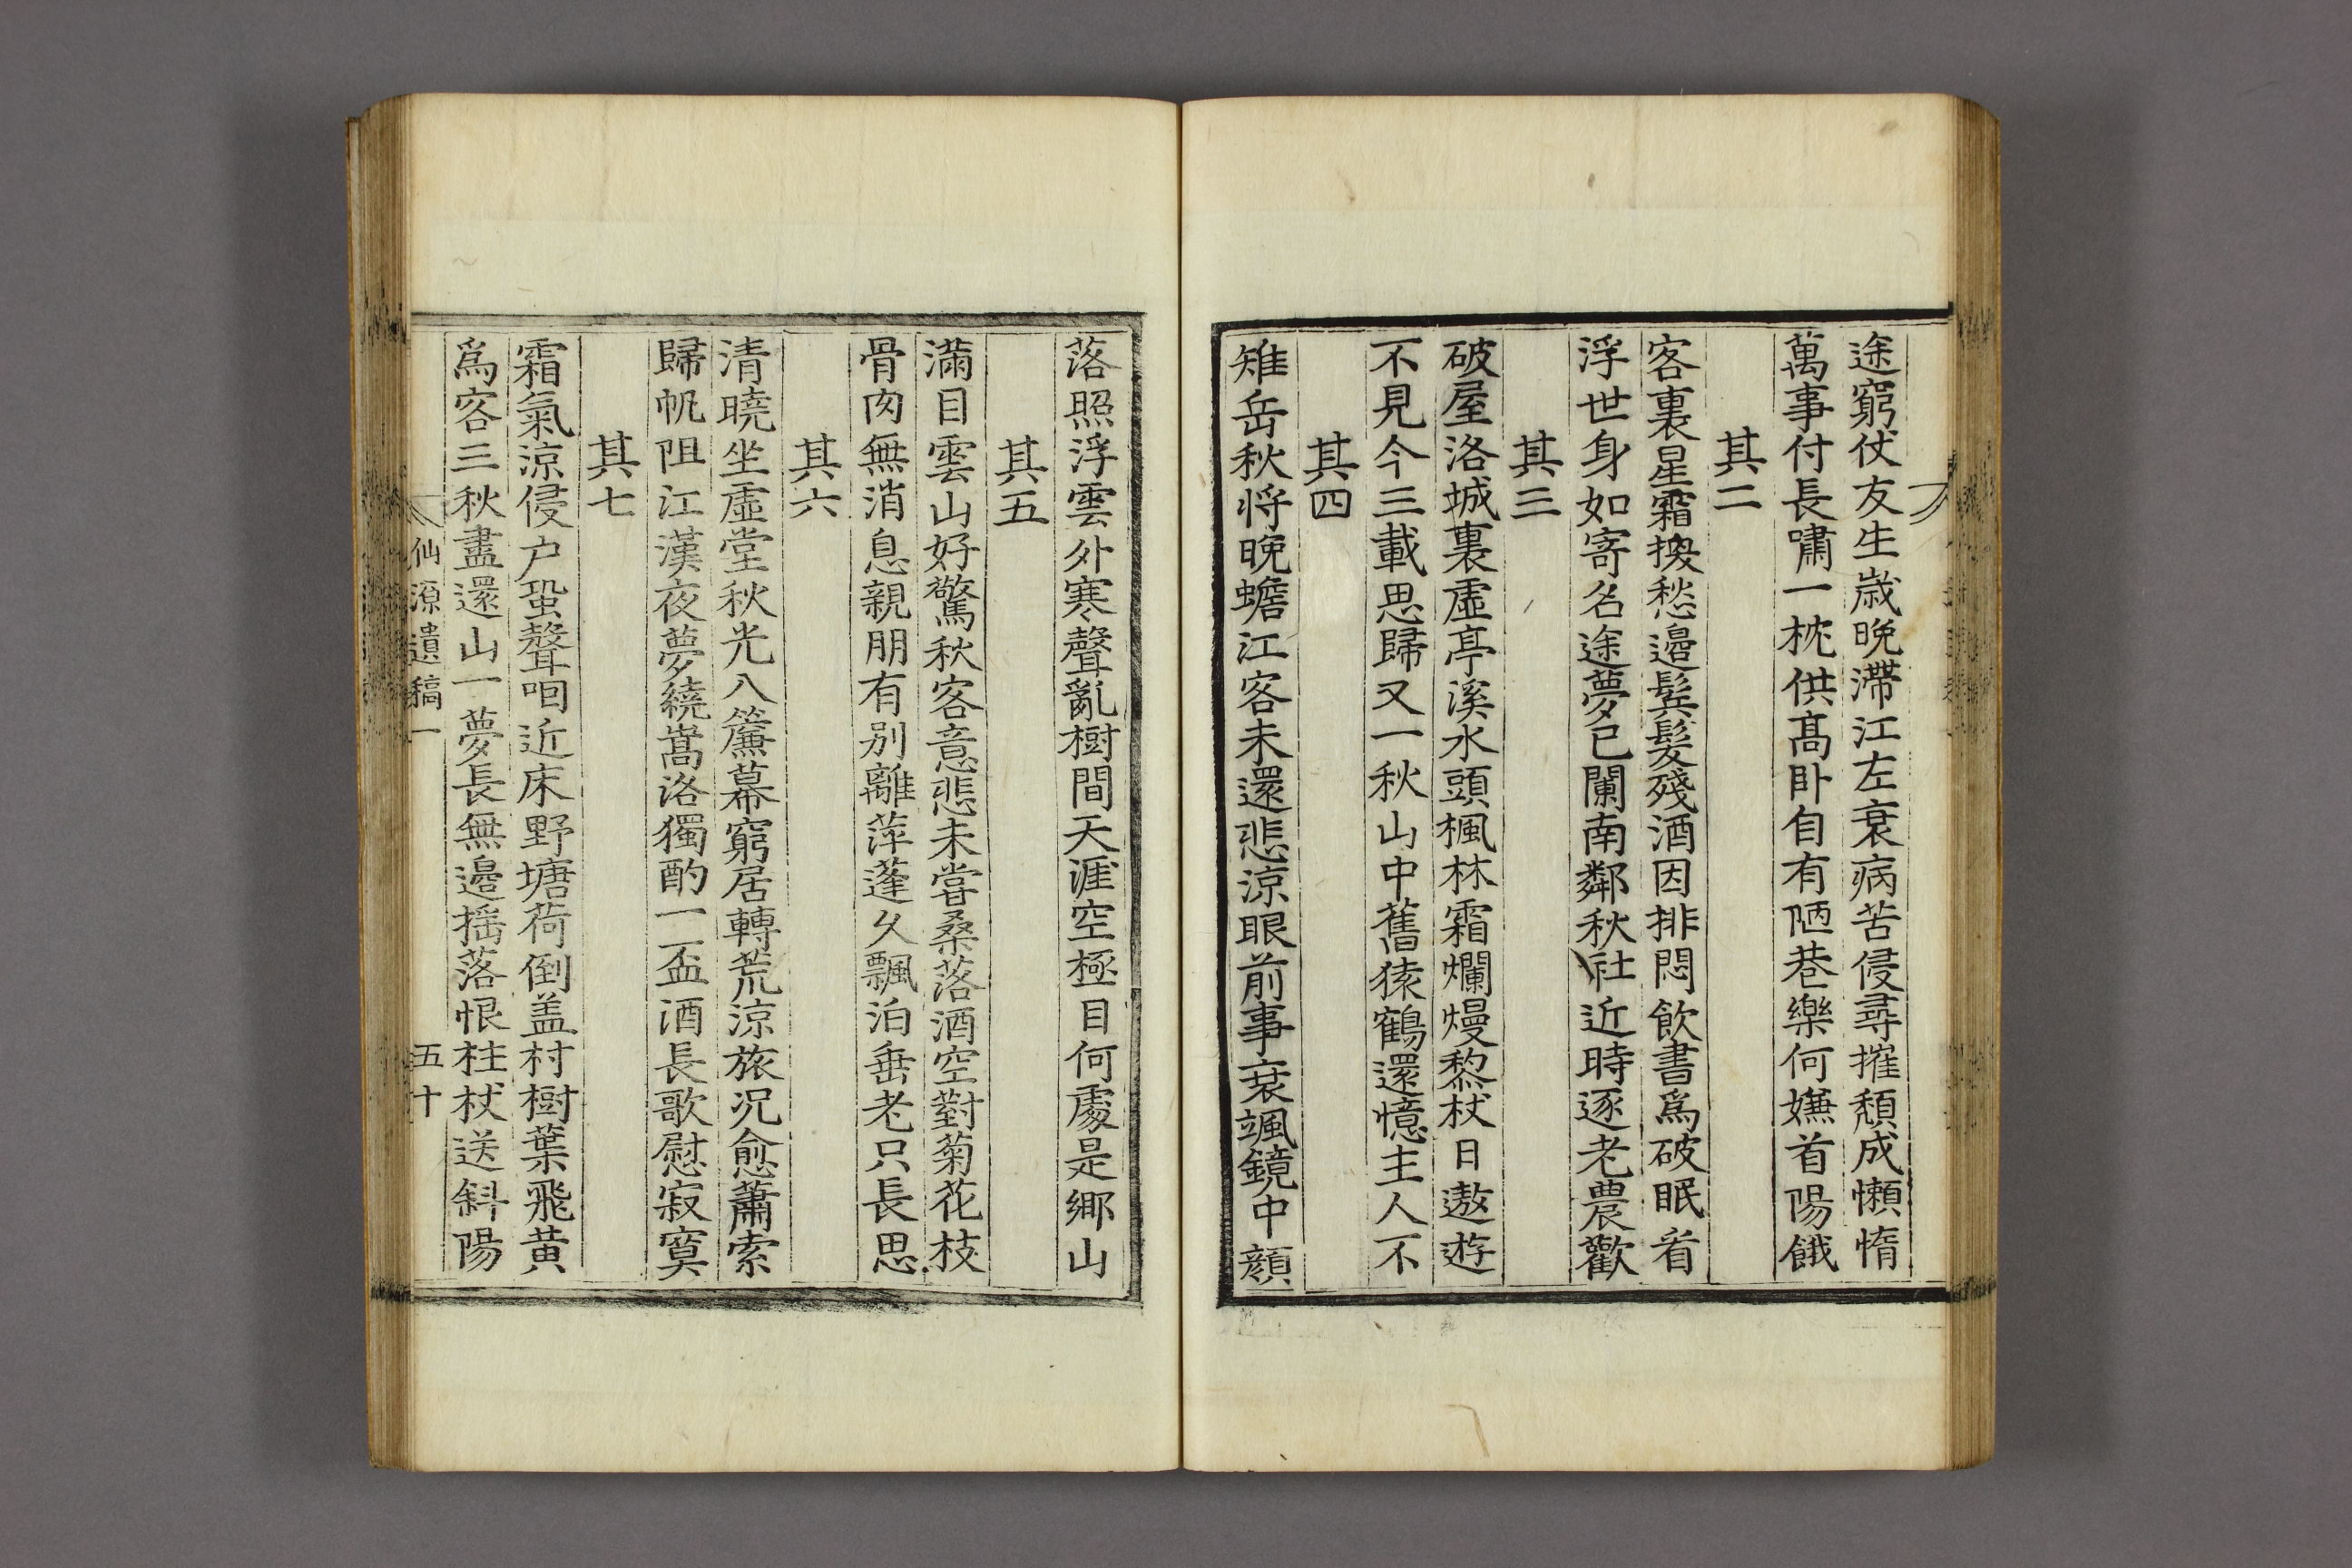 途窮仗友生歲晚滯江左衰病苦侵尋摧頹成懶惰
萬事付長嘯一枕供高卧自有陋巷樂何嫌首陽餓
其二
客裏星霜換愁邉鬂髮殘酒因排悶飲書爲破眠看
浮世身如寄名途夢已闌南鄰秋社近時逐老農歡
其三
破屋洛城裏虛亭溪水頭楓林霜爛熳藜杖日遨遊
不見今三載思歸又一秋山中舊猿鶴還憶主人不
其四
雉岳秋将晚蟾江客未還悲凉眼前事衰颯鏡中顔
落照浮雲外寒聲亂樹間天涯空極目何處是鄉山
其五
滿目雲山好驚秋客意悲未甞桑落酒空對菊花枝
骨肉無消息親朋有别離萍蓬久飄泊垂老只長思
其六
清曉坐虛堂秋光入簾幕窮居轉荒凉旅况愈蕭索
歸帆阻江漢夜夢繞嵩洛獨酌一盃酒長歌慰寂寞
其七
霜氣凉侵户蛩聲咽近床野塘荷倒盖村樹葉飛黄
爲客三秋盡還山一夢長無邉揺落恨柱杖送斜陽
仙源遺稿一 五十